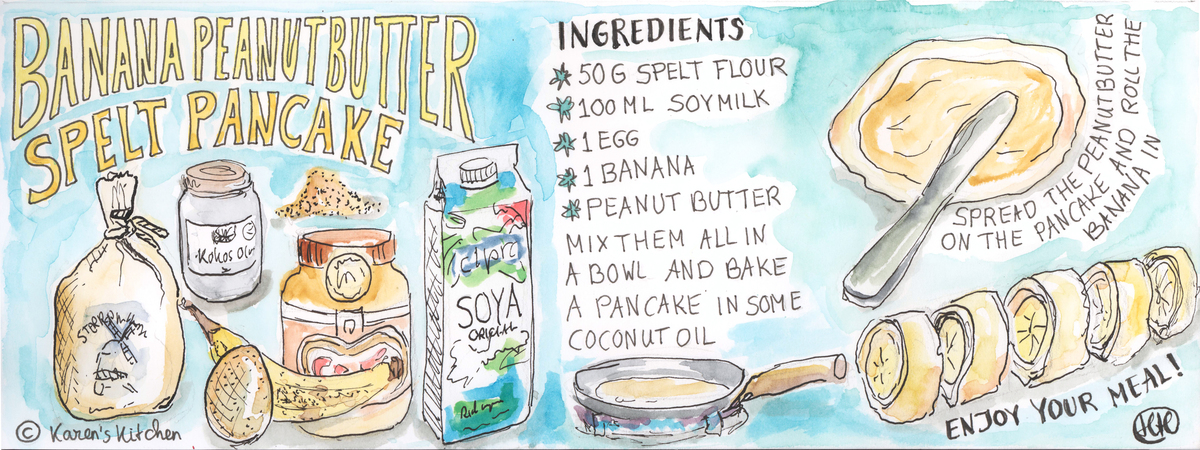 BANANA PEANUTBUTTER
SPELT PANCAKE
Kokos
SOYA
ORIGINAL
© Karen's Kitchen
INGREDIENTS
50 G SPELT FLOUR
100 ML SOYMILK
1 EGG
1 BANANA
PEANUT BUTTER
MIX THEM ALL IN
A BOWL AND BAKE
A PANCAKE IN SOME
COCONUT OIL
SPREAD THE PEANUTBUTTER
ON THE PANCAKE AND ROLL THE
BANANA IN
ENJOY YOUR MEAL!